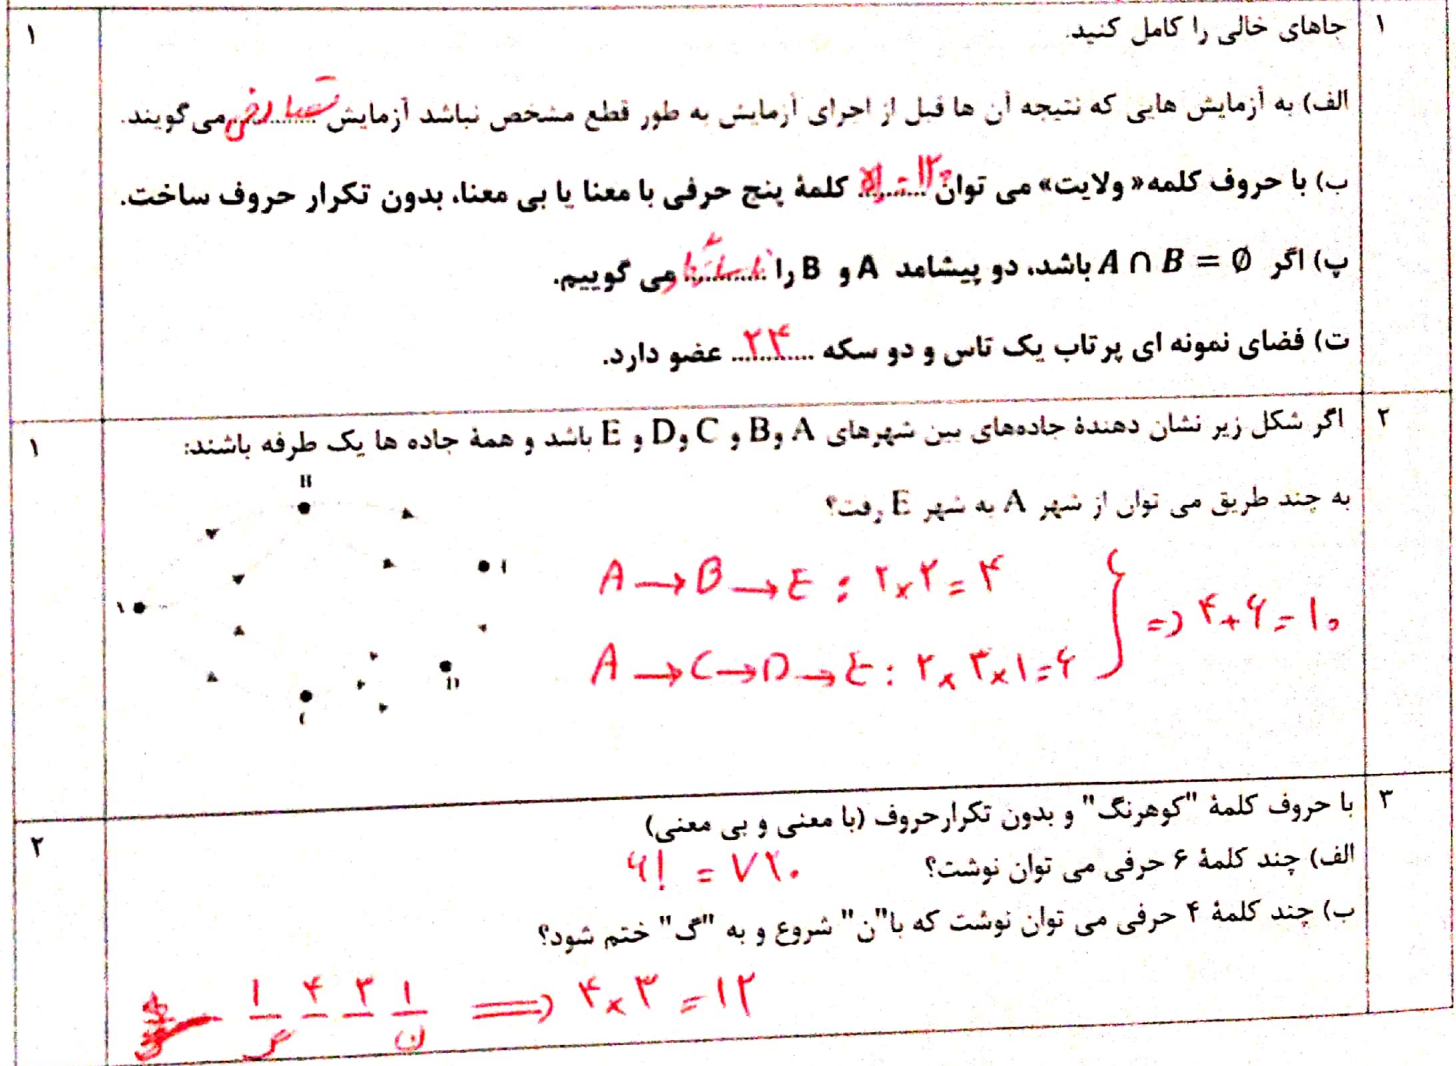 ۱ جاهای خالی را کامل کنید. ۱
الف) به آزمایش هایی که نتیجه آن ها قبل از اجرای آزمایش به طور قطع مشخص نباشد آزمایش تصادفی می‌گویند.
ب) با حروف کلمه« ولایت» می توان ......... کلمهٔ پنج حرفی با معنا یا بی معنا، بدون تکرار حروف ساخت.
پ) اگر A ∩ B = ∅ باشد، دو پیشامد A و B را ناسازگار می گوییم.
ت) فضای نمونه ای پرتاب یک تاس و دو سکه ۲۴ عضو دارد.
۲ اگر شکل زیر نشان دهندهٔ جاده‌های بین شهرهای A وB و C وD و E باشد و همهٔ جاده ها یک طرفه باشند: ۱
به چند طریق می توان از شهر A به شهر E رفت؟
B
A → B → E : ۲×۲=۴
A → C → D → E : ۲×۳×۱=۶
} => ۴+۶=۱۰
D
۳ با حروف کلمهٔ "کوهرنگ" و بدون تکرارحروف (با معنی و بی معنی) ۲
الف) چند کلمهٔ ۶ حرفی می توان نوشت؟ ۶! = ۷۲۰
ب) چند کلمهٔ ۴ حرفی می توان نوشت که با"ن" شروع و به "گ" ختم شود؟
۱ ۴ ۳ ۱ => ۴×۳=۱۲
گ ن